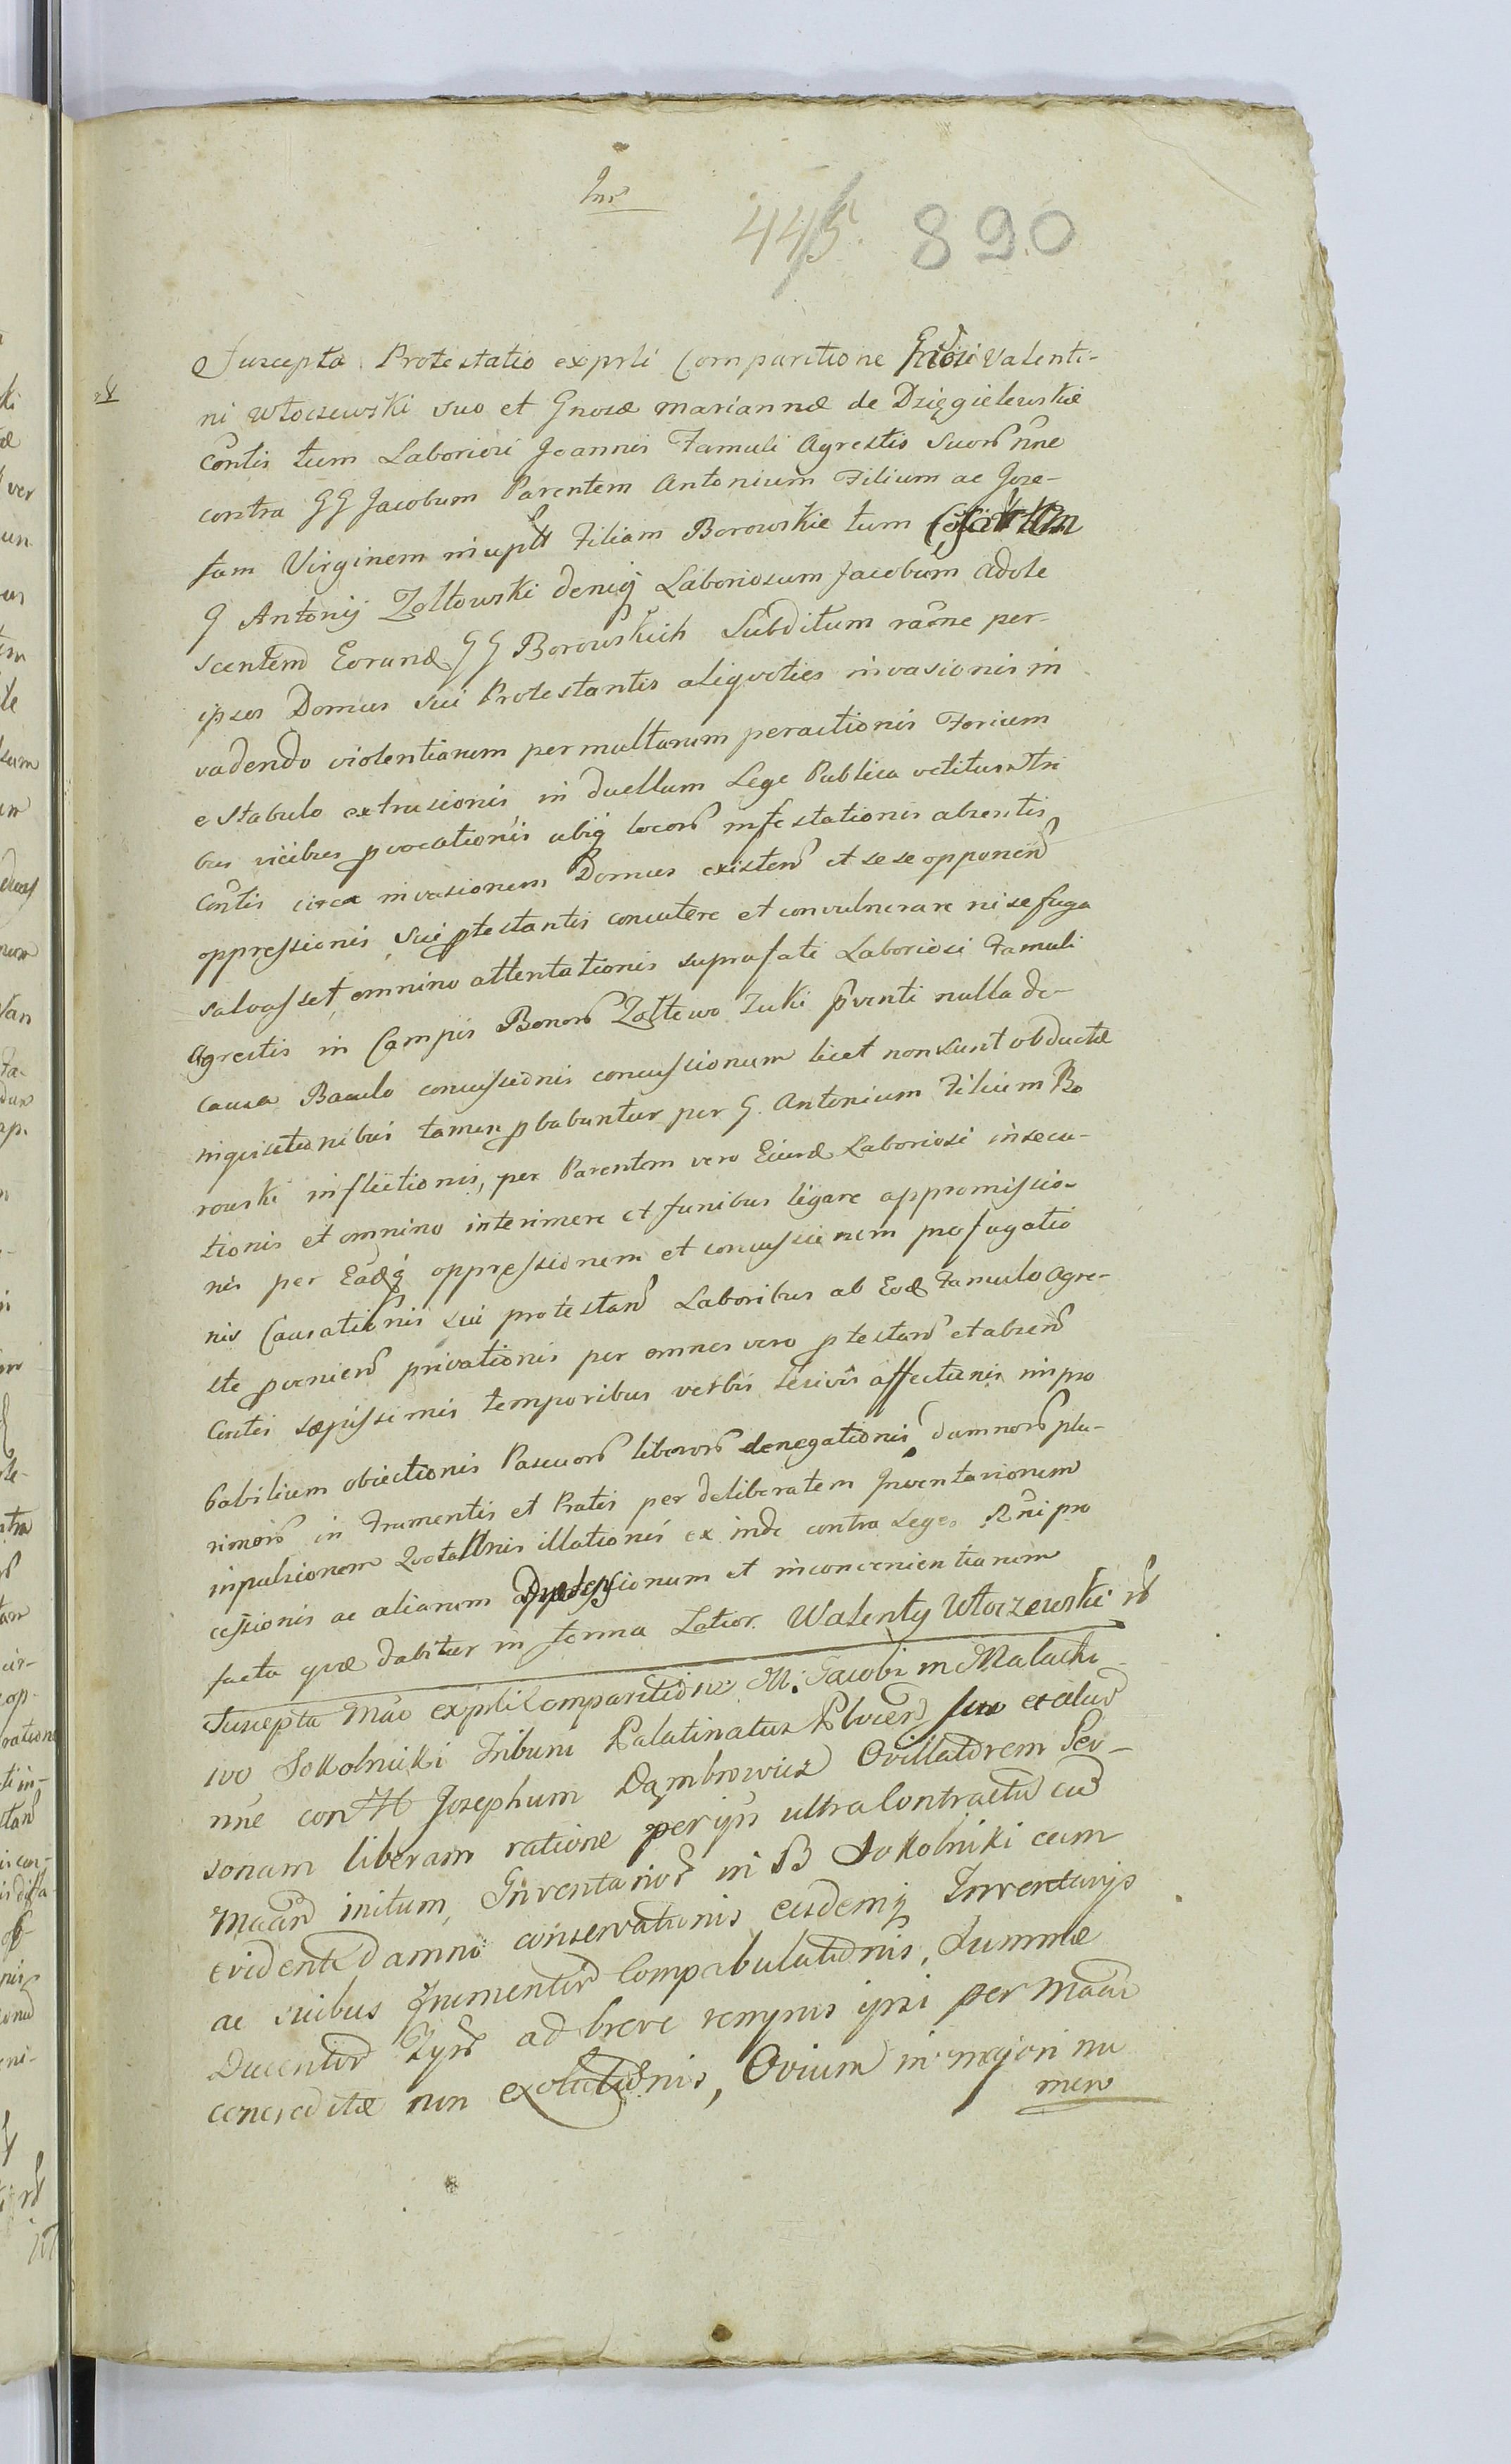 Inr
445. 890
Suscepta Protestatio exprli Comparitione Gnosi Valenti-
ni Włoczewski suo et Gnosæ Mariannæ de Dzięgielewskie
Contis tum Laboriosi Joannis Famuli Agrestis Suorũ nñe
contra GG Jacobum Parentem Antonium Filium ac Joze-
fam Virginem inuptã Filiam Borowskie tum
G Antonij Zołtowski deniq Laboriosum Jacobum adole
scentem Eorund GG Borowskich Subditum raõne per
ipsos Domus sui Protestantis aliqvoties invasionis in
vadendo violentiarum permultarum peractionis Forium
e Stabulo extrusionis in duellum Lege Publica vetitum tri
bus vicibus pvocationis ubiq locorũ infestationis absentis
Contis circa invasionem Domus existen et sese opponen
oppressionis, sui ptestantis concutere et convulnerare ni se fuga
salvasset, omnino attentationis suprafati Laboriosi Famuli
Agrestis in Campis Bonorũ Zołtowo Tuki pventi nulla de
causa Baculo concussionis concussionum licet non sunt obductæ
inquisitionibus tamen pbabuntur per G. Antonium Filium Bo
rowski inflictionis, per Parentem vero Eiusd Laboriosi insecu-
tionis et omnino interimere et funibus ligare appromissio-
nis per Eadq oppressionem et concussionem profugatio
nis Causationis sui protestan Laboribus ab Eod Famulo Agre-
ste pvenien privationis per omnes vero ptestan et absen
Contis sæpissimis temporibus verbis lesivis affectionis impro
babilium obiectionis Pascuorũ liberorũ denegationis damnorũ plu-
rimorũ in Frumentis et Pratis per deliberatem Inventariorum
inpulsionem illationis ex inde contra Lege. Rñi pro
cessionis ac aliarum oppressionum et inconvenientiarum
facta qvæ dabitur in forma Latior. Walenty Włoczewski
Suscepta Mão exprli Comparitione M. Jacobi in Malachi
wo Sokolnicki Tribuni Palatinatus Plocen suo et aliũ
nñe con M Josephum Dąmbrowicz Ovillatorem Per-
sonam liberam ratione per ipsũ ultra Contractũ cũ
Maañ initum, Inventariorũ in B Sokolniki cum
evident damno conservationis eisdemq Inventarijs
ac suibus Frumentorũ Compabulationis, Summæ
Ducentorũ ad breve tempus ipsi per Maañ
concreditæ non exolutionis, Ovium in majori nu
mero